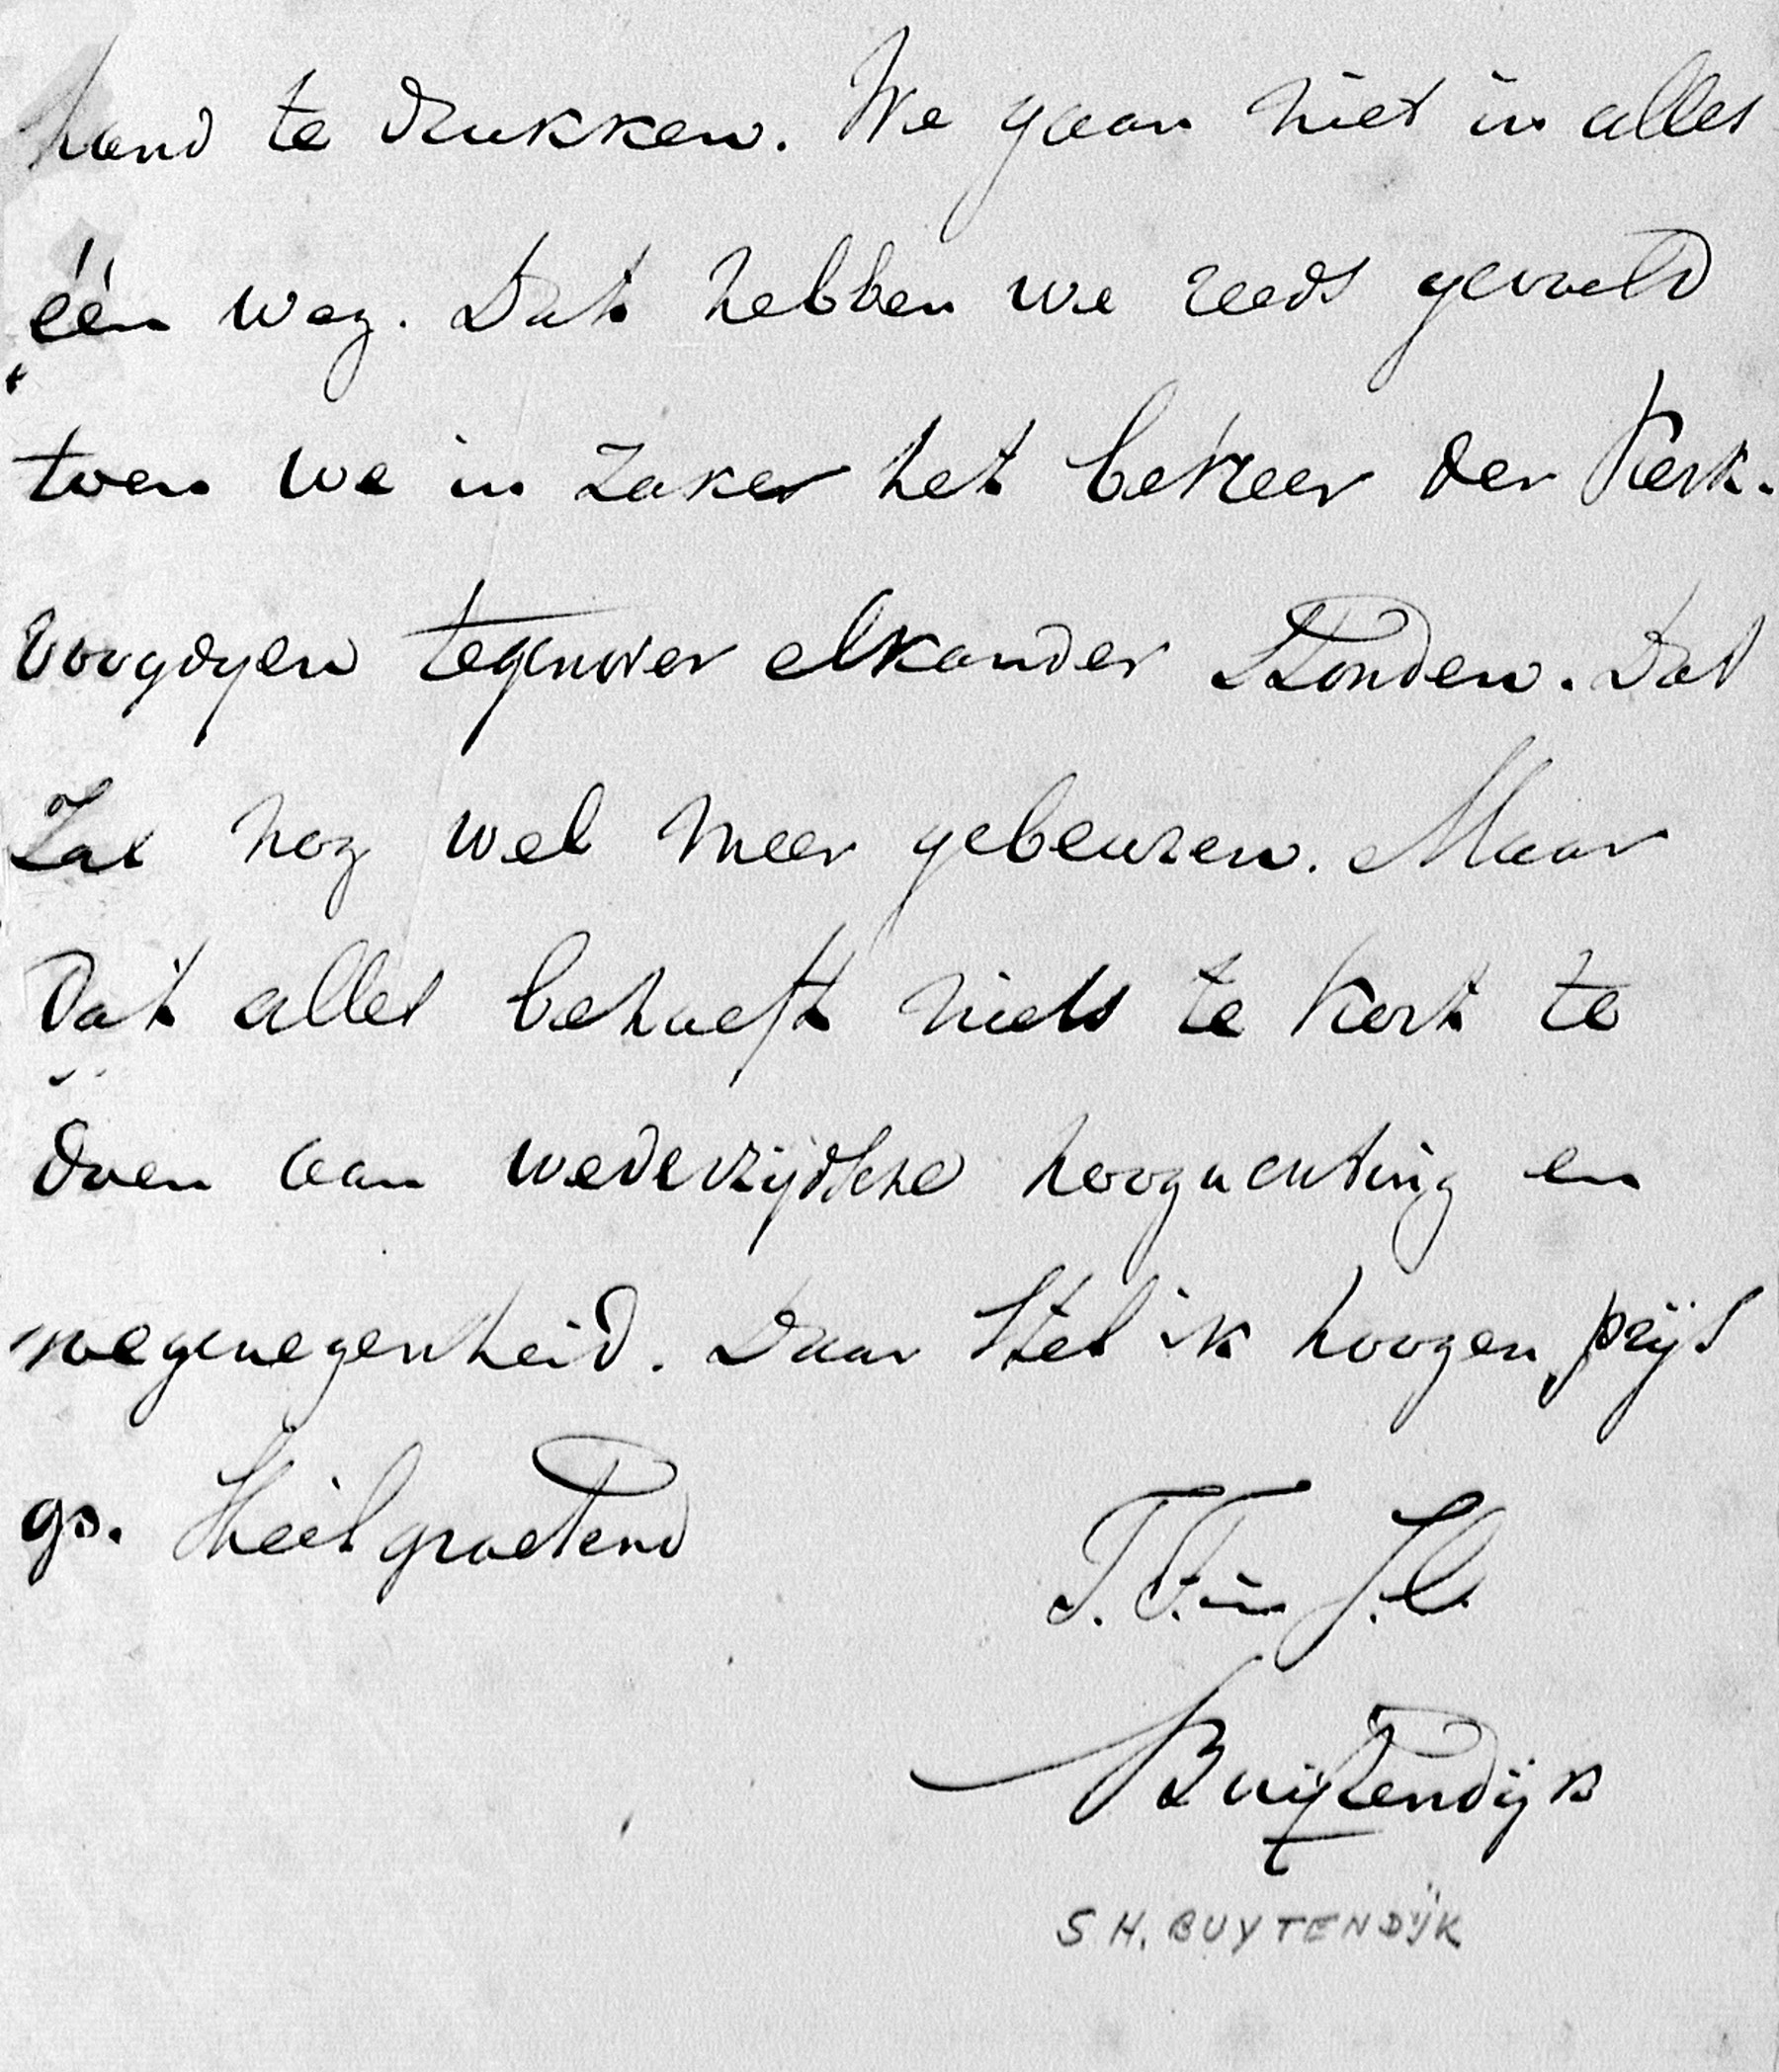 hand te drukken. We gaan niet in alles
één weg. Dat hebben we reeds gevoeld
toen we in zaken het beheer der Kerk-
voogdyen tegenover elkander stonden. Dat
zal nog wel meer gebeuren. Maar
dat alles behoeft niets te kort te
doen aan wederzijdsche hoogachting en
toegenegenheid. Daar stel ik hoogen prijs
op. Heilgroetend
T.T. in J.C.
Buytendijk
S H. BUYTENDIJK